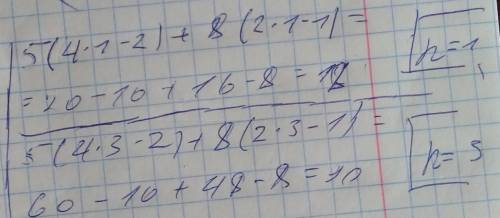 5(4·1-2)+8(2·1-1)=
n=1
=20-10+16-8=18
5(4·3-2)+8(2·3-1)=
60-10+48-8=90
n=3